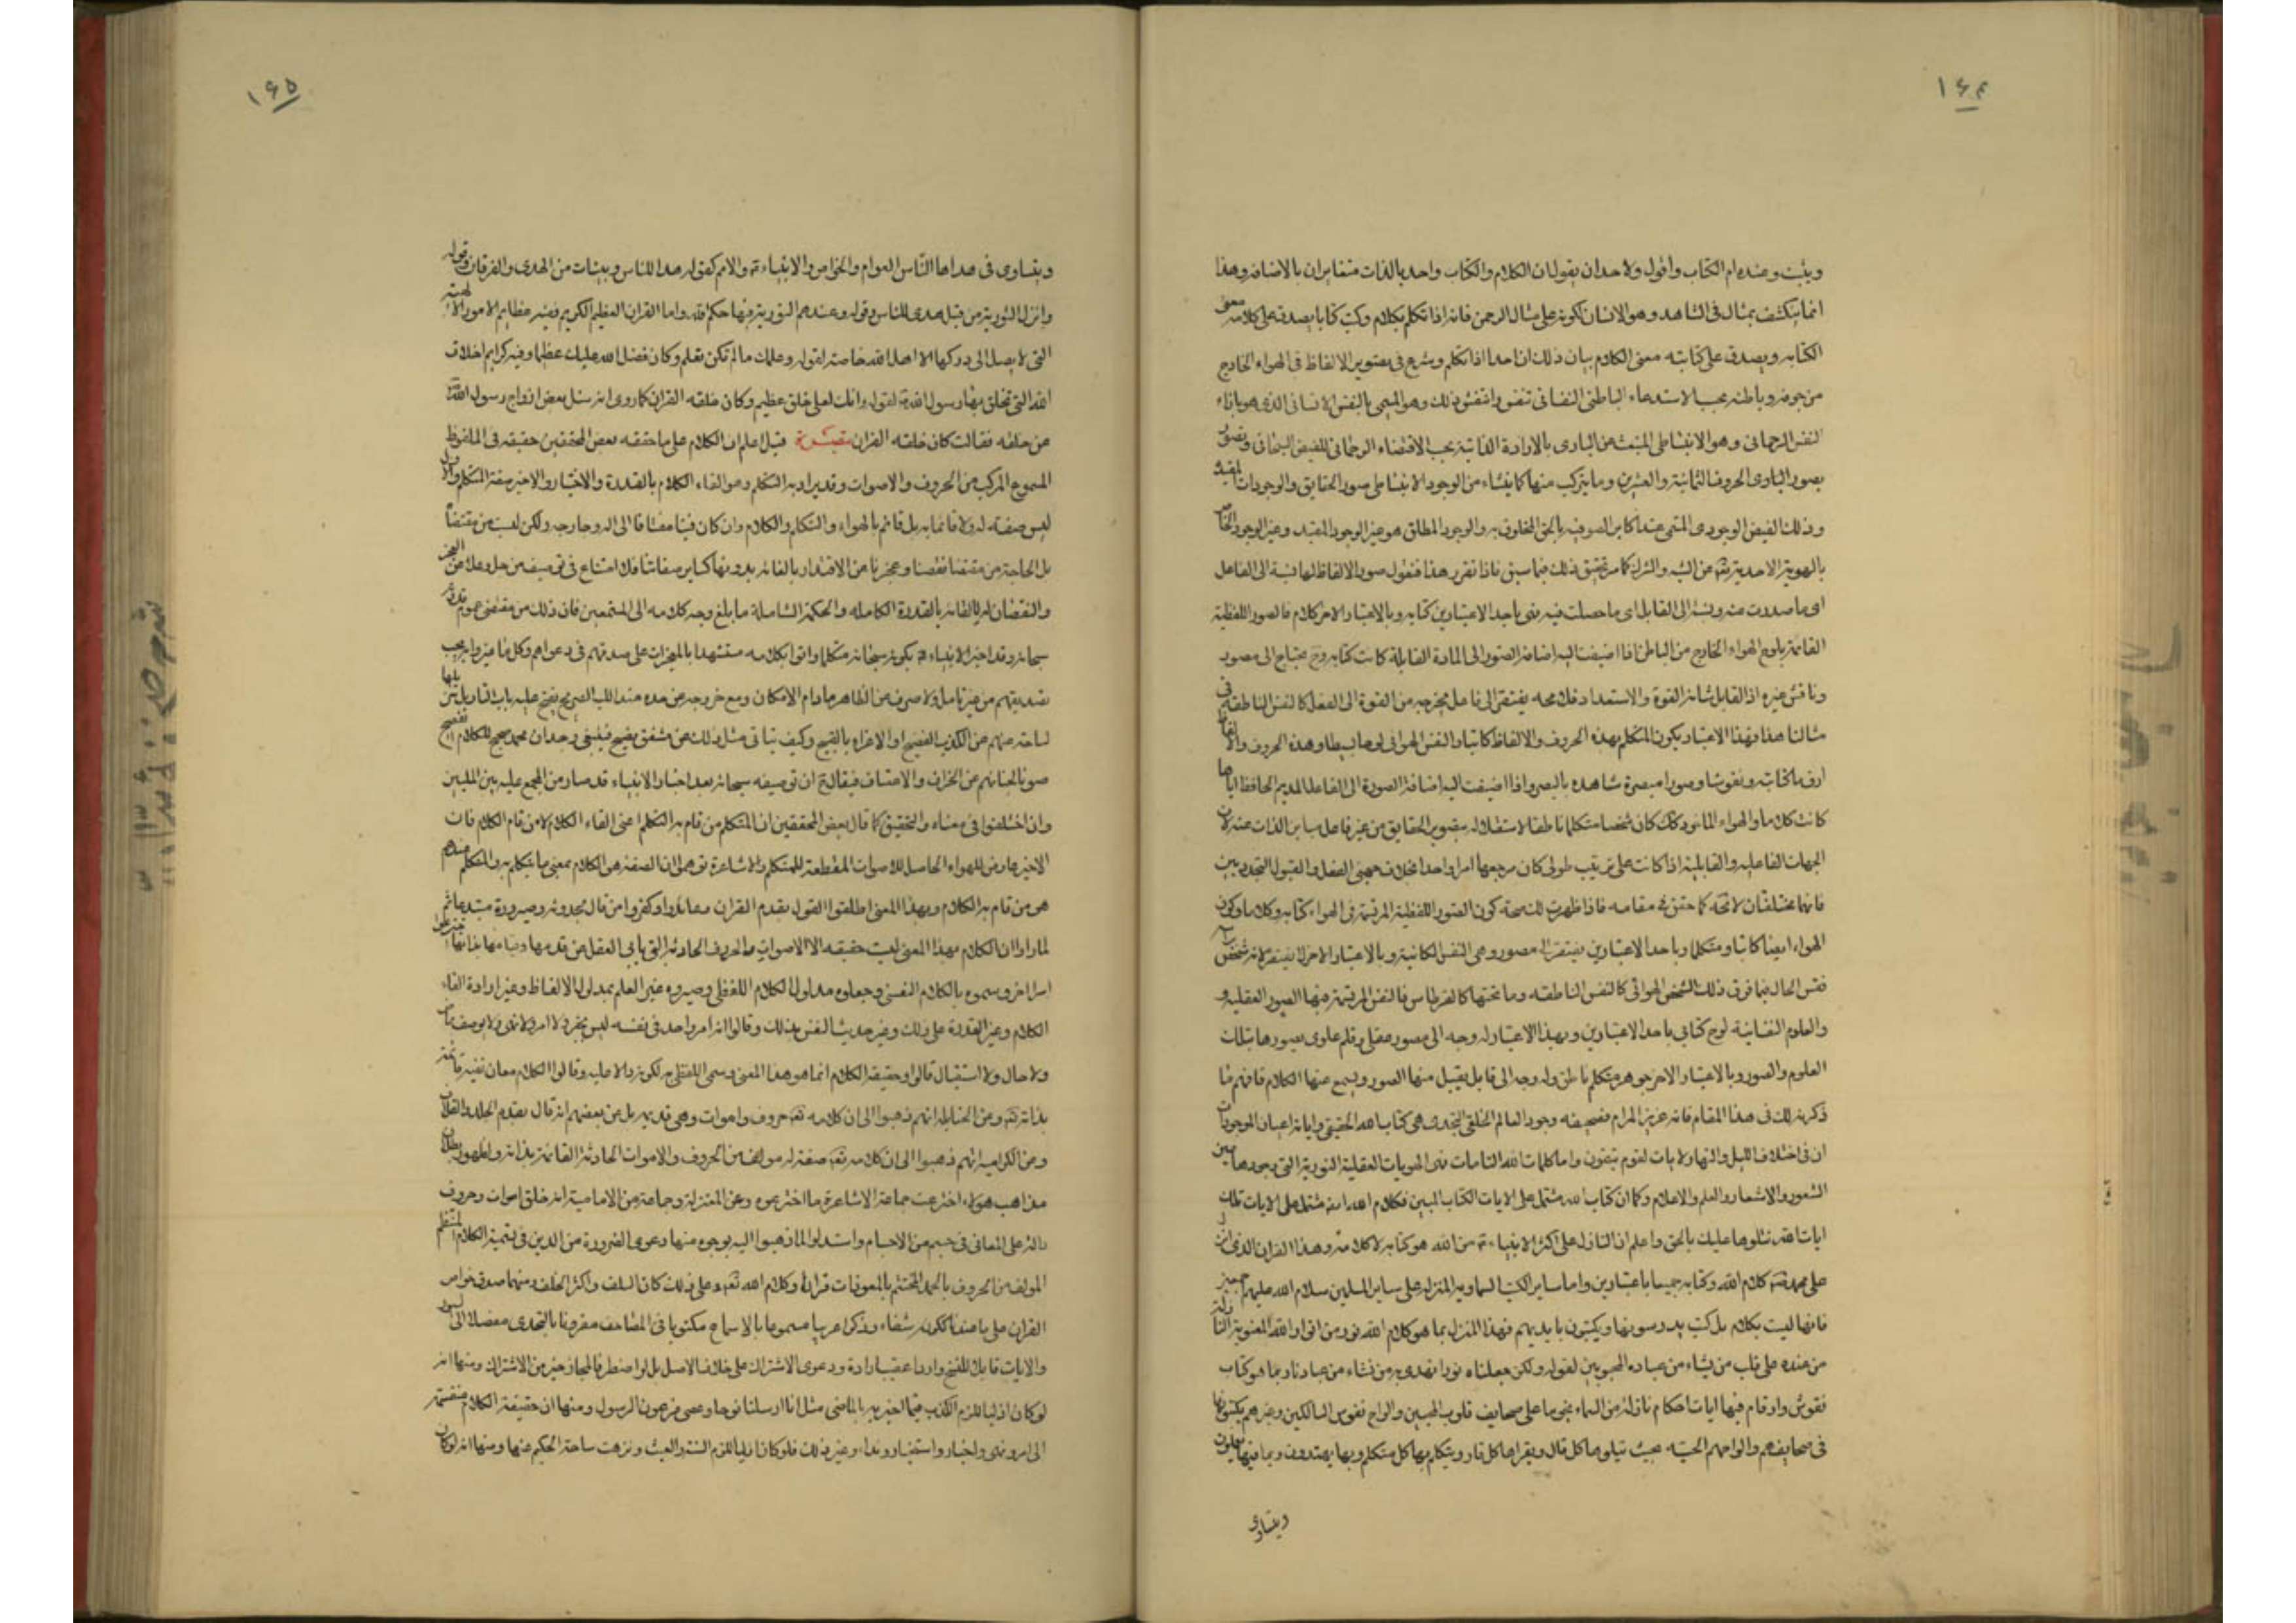 ١٦٤
ويثبت وعنده ام الكتاب واقول ولاحد ان يقول ان الكلام والكتاب واحد بالذات متغايران بالاضافه وهذا
انما ينكشف بمثال فى الشاهد وهو الانسان لكونه على مثال الرحمن فانه اذا تكلم بكلام وكتب كتابا يصدق على كلامه معنى
الكتابه ويصدق على كتابته معنى الكلام بيان ذلك ان احدا اذا تكلم وشرع فى تصوير الالفاظ فى الهواء الخارج
من جوفه وباطنه بحسب الاستدعاء الباطنى النفسانى تنفس وانتقش بذلك وهو المسمى بالنفس الانسانى الذى هو بازاء
النفس الرحمانى وهو الانبساطى المنبعث عن البارى بالارادة الذاتية بحسب الاقتضاء الرحمانى للفيض السبحانى وتصور
بصور البارى الحروف الثمانية والعشرين وما يتركب منها كما ينشاء من الوجود الانبساطى صور الحقايق والوجودات المقيدة
وذلك الفيض الوجودى المسمى عند اكابر الصوفيه بالحق المخلوق به والوجود المطلق هو غير الوجود المقيد وغير الوجود الخاص
بالهوية الاحدية تقدس عن الشبه والشرك كما مر تحقيق ذلك فيما سبق فاذا تقرر هذا فنقول صور الالفاظ لها نسبة الى الفاعل
اى ما صدرت عنه ونسبة الى القابل اى ما حصلت فيه فهى باحد الاعتبارين كتابه وبالاعتبار الاخر كلام فالصور اللفظية
القائمة بلوح الهواء الخارج من الباطن اذا اضيفت اليه اضافة الصور الى المادة القابلة كانت كتابه وح يحتاج الى مصور
وناقش غيره اذ القابل شانه القوة والاستعداد فلا محه يفتقر الى فاعل يخرجه من القوة الى الفعل كالنفس الناطقه فى
مثالنا هذا فبهذا الاعتبار يكون المتكلم بهذه الحروف والالفاظ كاتبا والنفس الهوائى لوحا بسيطا وهذه الحروف والالفاظ
ارقاما كتابيه ونقوشا وصورا مبصرة شاهده بالبصر واذا اضيفت اليه اضافة الصورة الى الفاعل المديم الحافظ اياها
كانت كلاما والهواء الماخوذ كك كان شخصا متكلما ناطقا لاستقلاله بتصوير الحقايق من غير فاعل مباين الذات عنه لان
الجهات الفاعليه والقابلية اذا كانت على ترتيب طولى كان مرجعها امرا واحدا بخلاف جهتى الفعل والقبول التجدديين
فانهما مختلفتان لامحه كما حقق فى مقامه فاذا ظهرت لك صحة كون الصور اللفظية المرقمة فى الهواء كتابه وكلاما وكون
الهواء ايضا كاتبا ومتكلما وباحد الاعتبارين يفتقر الى مصور وهى النفس الكاتبة وبالاعتبار الاخر لا يفتقر لانه شخص
فقس الحال فيما فوق ذلك الشخص الهوائى كالنفس الناطقه وما تحتها كالقرطاس فالنفس المرقمة فيها الصور العقليه
والعلوم النفسانية لوح كتابى باحد الاعتبارين وبهذا الاعتبار له وجه الى مصور عقلى وقلم علوى يصورها بتلك
العلوم والصور وبالاعتبار الاخر جوهر متكلم ناطق وله وجه الى قابل يقبل منها الصور ويسمع عنها الكلام فافهم ما
ذكرته لك فى هذا المقام فانه عزيز المرام فصحيفه وجود العالم الخلقى التجددى هى كتاب الله الحقيقى واياته اعيان الموجودات
ان فى اختلاف الليل والنهار لايات لقوم يتقون واما كلمات الله التامات فهى الهويات العقلية النورية التى وجودها عين
الشعور والاشعار والعلم والاعلام وكما ان كتاب الله مشتمل على الايات الكتاب المبين فكلام الله ايضا مشتمل على الايات تلك
ايات الله نتلوها عليك بالحق واعلم ان النازل على اكثر الانبياء من الله هو كتابه لا كلامه وهذا القران الذى انزل
على محمد كلام الله وكتابه جميعا باعتبارين واما ساير الكتب السماوية المنزلة على ساير المسلين سلام الله عليهم اجمعين
فانها ليست بكلام بل كتب يدرسونها ويكتبون بايديهم فهذا المنزل بما هو كلام الله نور من انوار الله المعنوية النازلة
من عنده على قلب من يشاء من عباده المحبوبين لقوله ولكن جعلناه نورا نهدى به من نشاء من عبادنا وبما هو كتاب
نقوش وارقام فيها ايات احكام نازلة من السماء نجوما على صحايف قلوب المحبين والواح نفوس السالكين وغيرهم يكتبونها
فى صحايفهم والواحهم الحسيه بحيث يتلوها كل تال ويقراها كل قار ويتكلم بها كل متكلم وبها يهتدون وبما فيها يعملون
ويتساوى
١٦٥
ويتساوى فى هداها الناس العوام والخواص والانبياء والامم كقوله هدى للناس وبينات من الهدى والفرقان وقوله
وانزل التورية من قبل هدى للناس وقوله وعندهم التورية فيها حكم الله واما القران العظيم الكريم ففيه عظايم الامور الالهية
التى لا يصل الى دركها الا اهل الله خاصة لقوله وعلمك ما لم تكن تعلم وكان فضل الله عليك عظيما وفيه كرايم اخلاق
الله التى تخلق بها رسول الله لقوله وانك لعلى خلق عظيم وكان خلقه القران كما روى انه سئل بعض ازواج رسول الله
عن خلقه فقالت كان خلقه القران تبصرة قيل اعلم ان الكلام على ما حققه بعض المحققين حقيقه فى الملفوظ
المسموع المركب من الحروف والاصوات وقد يراد به التكلم وهو القاء الكلام بالقدرة والاختيار والاخير صفة المتكلم والاول
ليس صفته له ولا قائما به بل قائم بالهواء والتكلم والكلام وان كان فينا مضافا الى اله وجارحه ولكن ليست من مقتضاه
بل الحاجة من مقتضا نقصنا وعجزنا عن الاقتدار بالقائه بدونها كساير صفاتنا فلا امتناع فى توصيف من جل وعلا عن العجز
والنقصان له بالقائه بالقدرة الكامله والحكمة الشاملة ما بلغ وجه كلامه الى المستمعين فان ذلك من مقتضى عموم قدرته
سبحانه وقد اخبر الانبياء بكونه سبحانه متكلما واتوا بكلامه مستشهدا بالمعجزات على صدقهم فى دعواهم وكل ما اخبروا به يجب
تصديقهم من غير تامل ولا صرف عن الظاهر مادام الامكان ومع خروجه عن هذه عند اللب الصريح يفتح عليه باب التاويل تنزيها
لساحته عنهم عن الكذب الفضيح او الاغراء بالقبيح وكيف يتاتى مثل ذلك عن مشفق نصيح فينبغى وجدان محمد صحيح للكلام الفصيح
صونا لجنابهم عن الخراف والاعتساف فيقال ح ان توصيفه سبحانه بعد اخبار الانبياء قد صار من المجمع عليه بين المليين
وان اختلفوا فى معناه والتحقيق كما قال بعض المحققين ان المتكلم من قام به التكلم اعنى القاء الكلام لا من قام الكلام فان
الاخير عارض للهواء الحاصل للاصوات المقطعة للمتكلم والاشاعرة توهموا ان الصفة هو الكلام بمعنى ما يتكلم به والمتكلم عندهم
هو من قام به الكلام وبهذا المعنى اطلقوا القول بقدم القران معاندوا وكفروا من قال بحدوثه وصيرورة مبتدعا ثم
لما راوا ان الكلام بهذا المعنى ليست حقيقه الا الاصوات والحروف الحادثه التى يابى العقل عن قدمها وقيامها بذاتها
امرا اخر وسموه بالكلام النفسى وجعلوه مدلول الكلام اللفظى وصيروه غير العلم بمدلول الالفاظ وغير ارادة القاء
الكلام وغير القدرة على ذلك وغير حديث النفس بذلك وقالوا انه امر واحد فى نفسه ليس بخبر ولا امر ولا نهى ولا يوصف بماض
ولا حال ولا استقبال قالوا وحقيقة الكلام انما هو هذا المعنى وسمى اللفظى به لكونه دالا عليه وقالوا الكلام معان نفسيه قائمة
بذاته تعه وعن الحنابلة انهم ذهبوا الى ان كلامه تعه حروف واصوات وهى قديمه بل عن بعضهم انه قال بقدم الجلد والغلاف
وعن الكرامية انهم ذهبوا الى ان كلامه تعه صفة له مولف من الحروف والاصوات الحادثة القائمة بذاته ولظهور بطلان
مذاهب هولاء اخترعت جماعة الاشاعرة ما اخترعوه وعن المعتزلة وجماعة من الامامية انه خلق اصوات وحروف
دالة على المعانى فى جسم من الاجسام واستدلوا لما ذهبوا اليه بوجوه منها دعوى الضرورة من الدين فى تسمية الكلام المنتظم
المولف من الحروف بالحمد المختتم بالمعوذات قرانا وكلام الله تعه وعلى ذلك كان السلف واكثر الخلف ومنها صدق خواص
القران على ما ضفنا ككونه شفاء وذكرا عربيا مسموعا بالاسماع مكتوبا فى المصاحف مقرونا بالتحدى مفصلا الى السور
والايات قابلا للنسخ واردا عقيب ارادة ودعوى الاشتراك على خلاف الاصل بل لو اضطر فالمجاز خير من الاشتراك ومنها انه
لو كان ازليا للزم الكذب فيما اخبر به بالماضى مثل انا ارسلنا نوحا وعصى فرعون الرسول ومنها ان حقيقة الكلام منقسمة
الى امر ونهى واخبار واستخبار ونداء وغير ذلك فلو كان ازليا للزم السفه والعبث ونزهت ساحة الحكيم عنها ومنها انه لو كان